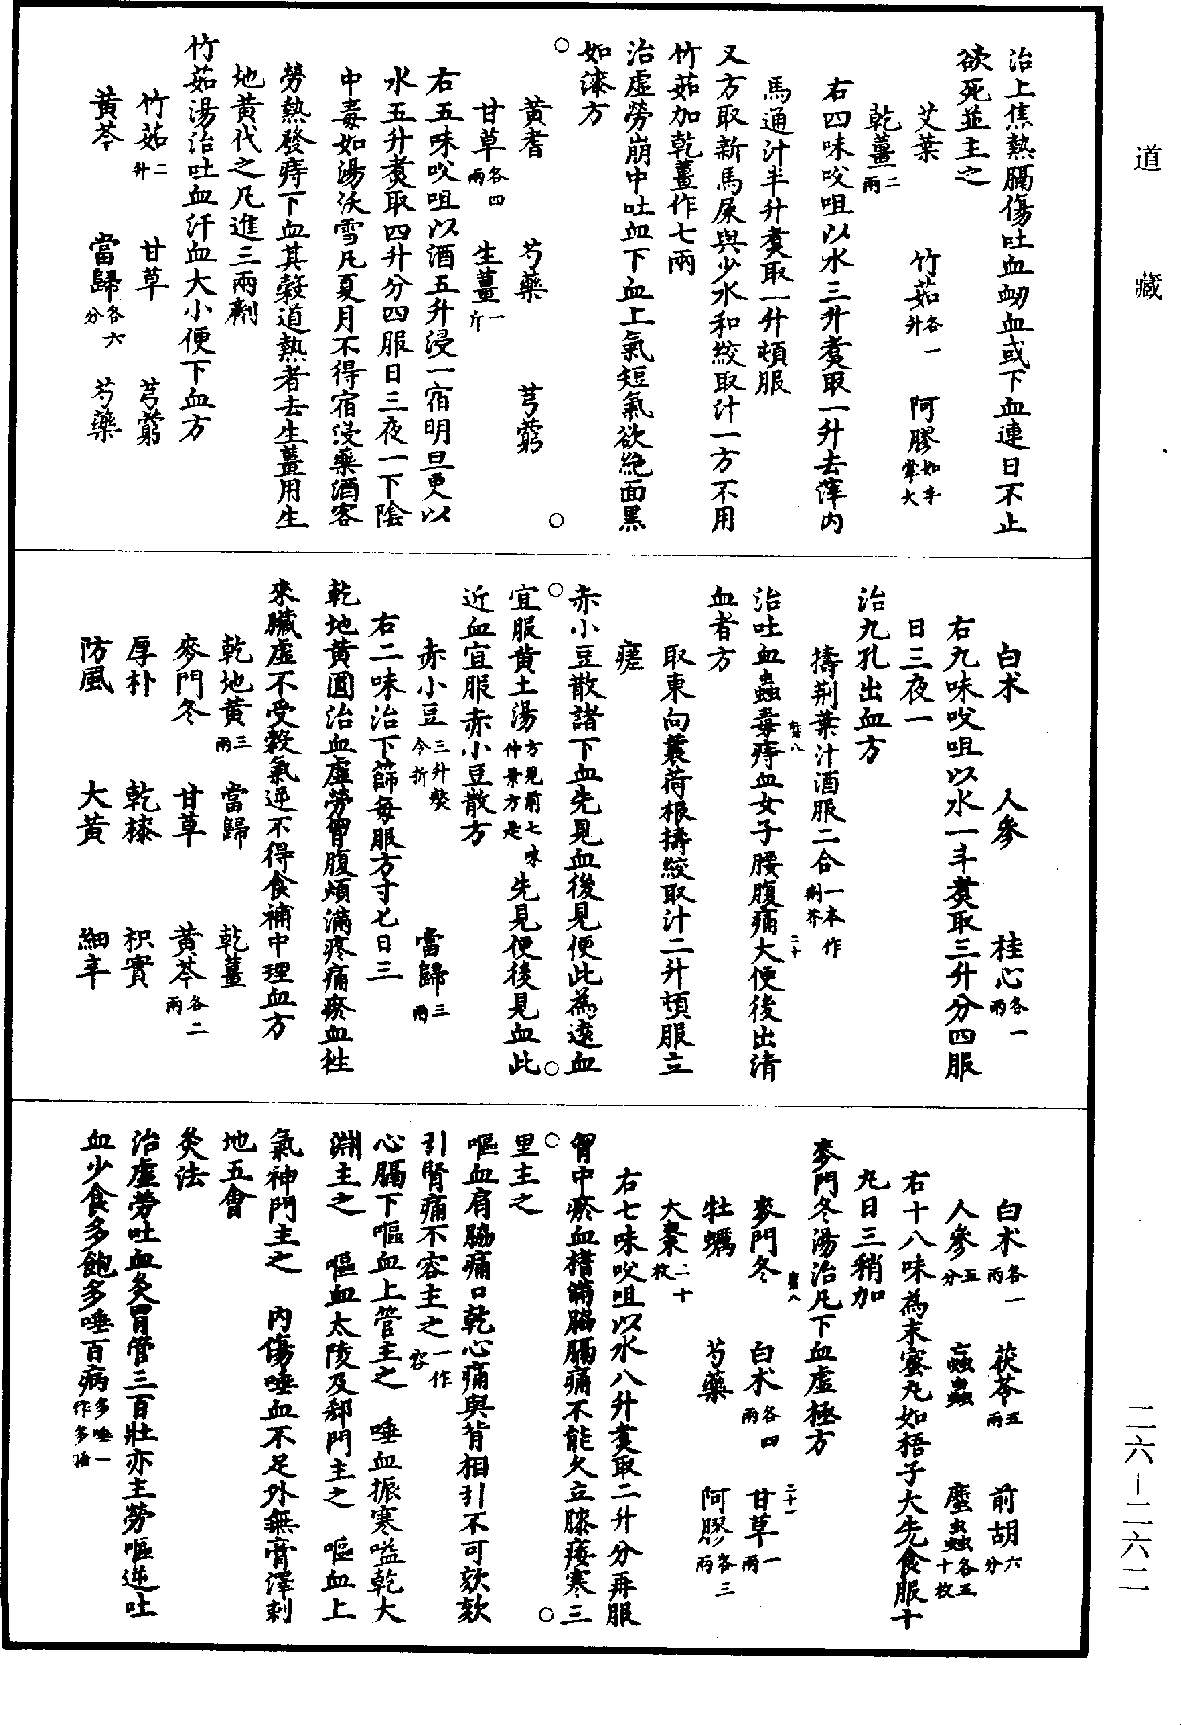 道藏
治上焦熱膈傷吐血衂血或下血連日不止
欲死並主之
艾葉 竹茹各一升 阿膠如手掌大
乾薑二兩
右四味㕮咀以水三升煑取一升去滓内
馬通汁半升煑取一升頓服
又方取新馬屎與少水和絞取汁一方不用
竹茹加乾薑作七兩
治虛勞崩中吐血下血上氣短氣欲絶面黑
如漆方
黄耆 芍藥 芎藭
甘草各四兩 生薑一斤
右五味㕮咀以酒五升浸一宿明旦更以
水五升煑取四升分四服日三夜一下陰
中毒如湯沃雪凡夏月不得宿浸藥酒客
勞熱發痔下血其穀道熱者去生薑用生
地黄代之凡進三兩劑
竹茹湯治吐血汗血大小便下血方
竹茹二升 甘草 芎藭
黄芩 當歸各六分 芍藥
白术 人參 桂心各一兩
右九味㕮咀以水一斗煑取三升分四服
日三夜一
治九孔出血方
擣荆葉汁酒服二合一本作荆芥
治吐血蟲毒痔血女子腰腹痛大便後出清
血者方
取東向蘘荷根擣絞取汁二升頓服立
瘥
赤小豆散諸下血先見血後見便此為遠血
宜服黄土湯方見前七味仲景方是先見便後見血此
近血宜服赤小豆散方
赤小豆三升熬令拆 當歸三兩
右二味治下篩每服方寸匕日三
乾地黄圓治血虛勞胷腹煩滿疼痛瘀血徃
來臟虛不受穀氣逆不得食補中理血方
乾地黄三兩 當歸 乾薑
麥門冬 甘草 黄芩各二兩
厚朴 乾漆 枳實
防風 大黄 細辛
白术各一兩 茯苓五兩 前胡六分
人參五分 䗈蟲 䗪蟲各五十枚
右十八味為末蜜丸如梧子大先食服十
丸日三稍加
麥門冬湯治凡下血虛極方
麥門冬 白术各四兩 甘草一兩
牡蠣 芍藥 阿膠各三兩
大棗二十枚
右七味㕮咀以水八升煑取二升分再服
胷中瘀血榰滿脇膈痛不能久立膝痿寒三
里主之
嘔血肩脇痛口乾心痛與背相引不可欬欬
引腎痛不容主之一作容
心膈下嘔血上管主之 唾血振寒嗌乾大
淵主之 嘔血太陵及郄門主之 嘔血上
氣神門主之 内傷唾血不足外無膏澤刺
地五會
灸法
治虛勞吐血灸胃管三百壯亦主勞嘔逆吐
血少食多飽多唾百病多唾一作多睡
二六—二六二